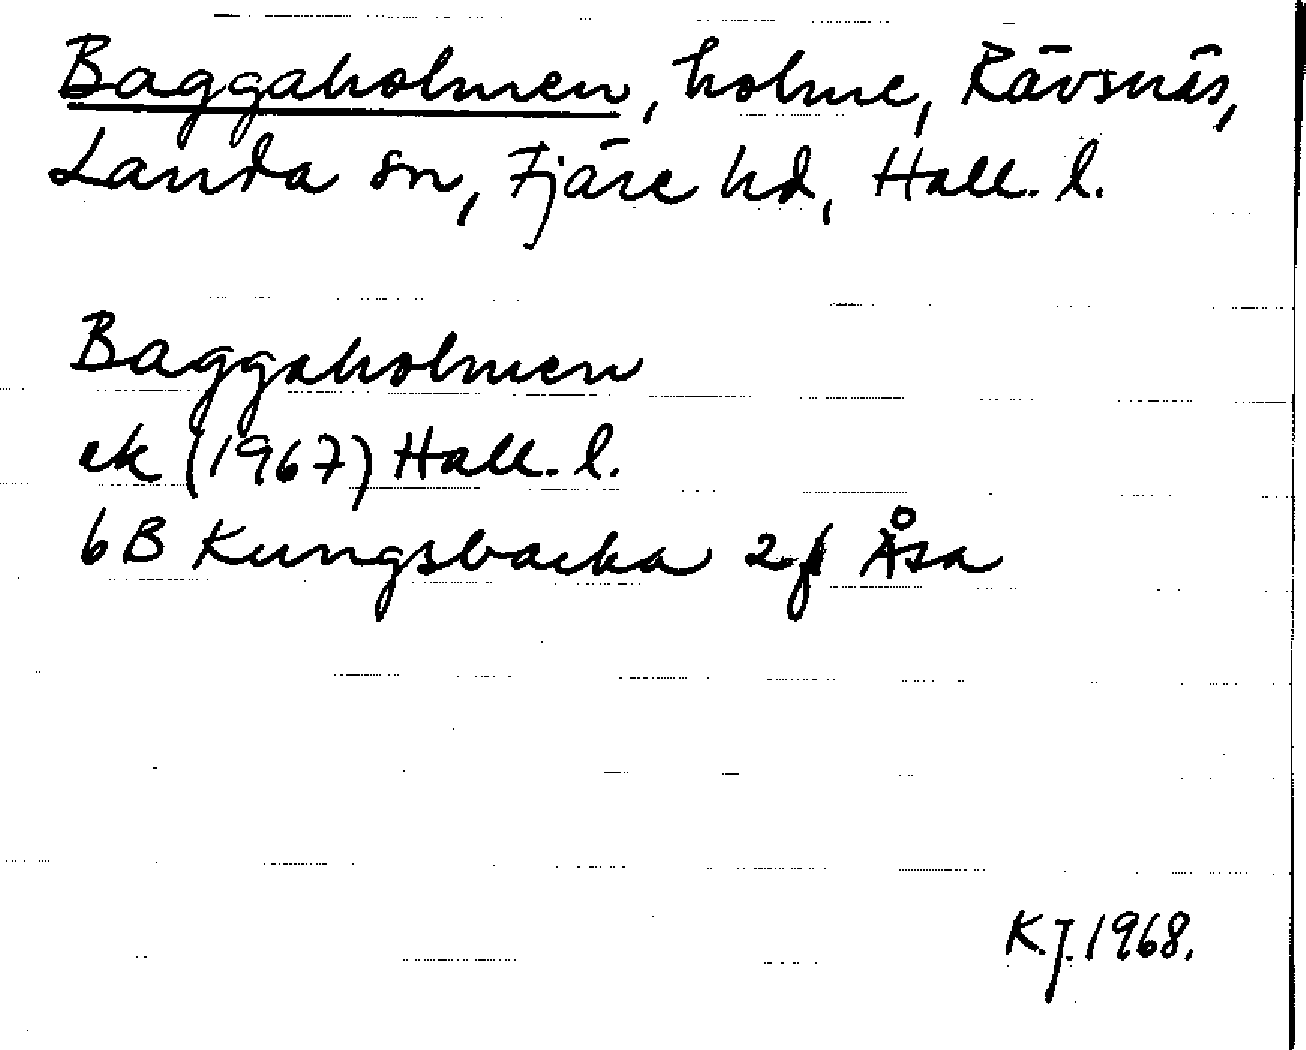 Baggaholmen, holme, Rävsnäs,
Landa sn, Fjäre hd, Hall. l.
Baggaholmen
ek (1967) Hall. l.
6B Kungsbacka 2f Åsa
K.J. 1968.